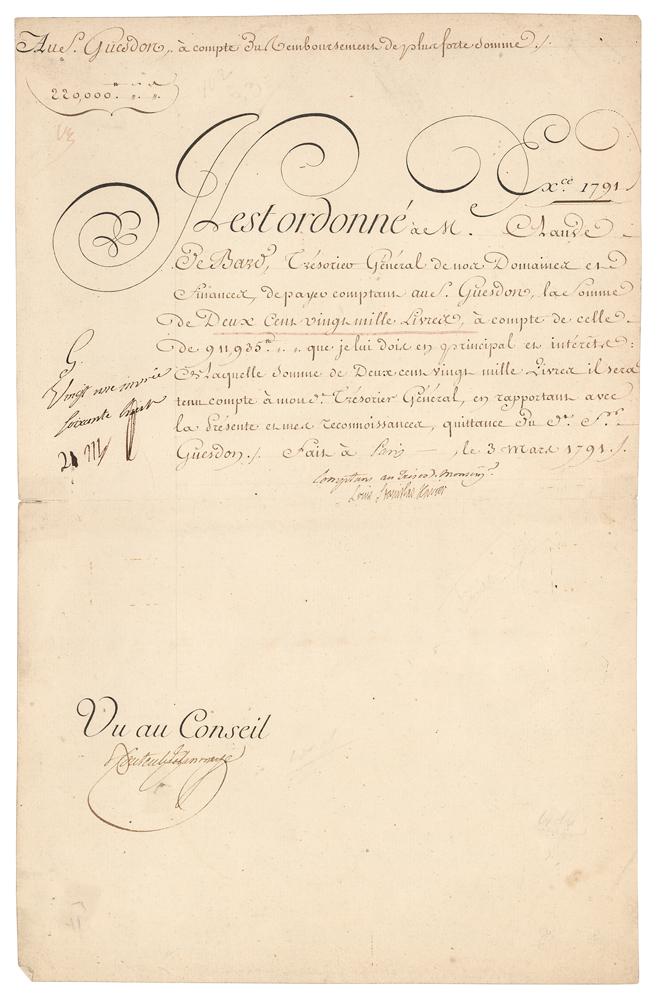 Au S. Guesdon, à compte du Remboursement de plus forte Somme ./.
220,000. " "
Exce. 1791
Il est ordonné à Me. Claude
De Bard, Trésorier Général de nos Domaines et
Finances, de payer comptant au S. Guesdon, la Somme
de Deux Cent vingt mille Livres, à compte de celle
de 911,935 " " que je lui dois en principal et intérêts:
De Laquelle Somme de Deux cent vingt mille Livres il sera
tenu compte à mon dt. Trésorier Général, en rapportant avec
la Présente et mes reconnoissances, quittance du dt. Sr.
Guesdon ./. Fait à Paris — le 3 Mars 1791 ./.
G.
Vingt
soixante
21
comptant au trésor. Monseigr.
Louis Stanislas Xavier
Vu au Conseil